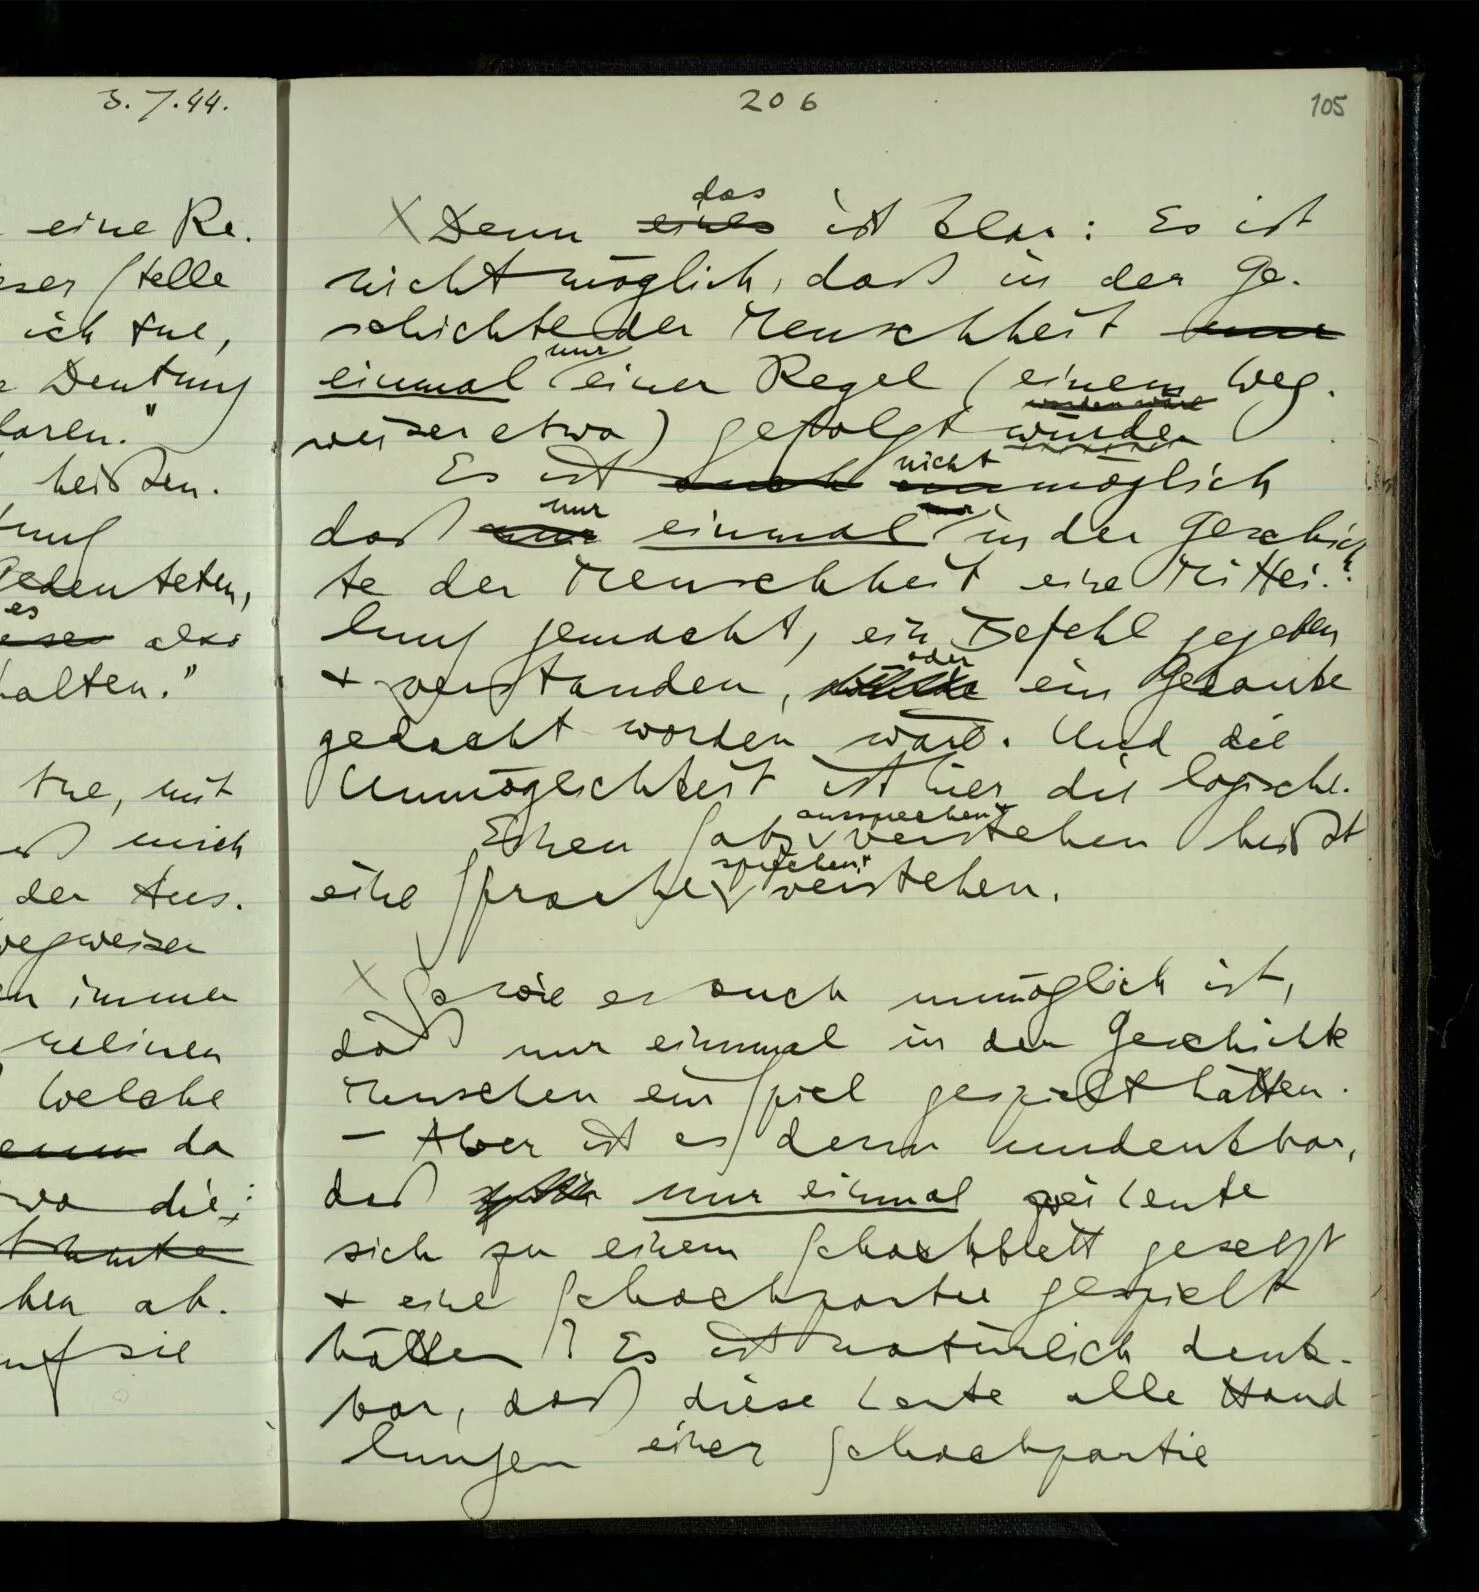 3.7.44.
eine Re.
eser Stelle
ich tue,
Deutung
laren."
heißen.
tung
Gedeuteten,
es
also
halten."
tue, mit
mich
der Aus.
wegweiser
immer
meinen
welche
da
wo die
hen ab.
auf sie
206
105
das
X Denn eines ist klar: Es ist
nicht möglich, daß in der Ge-
schichte der Menschheit nur
nur
einmal einer Regel (einem Weg-
worden wäre
weiser etwa) gefolgt würde
nicht
Es ist auch unmöglich
nur
daß nur einmal in der Geschich
te der Menschheit eine Mittei-
lung gemacht, ein Befehl gegeben
oder
+ verstanden, ein Gedanke
gedacht worden wäre. Und die
Unmöglichkeit ist hier die logische.
aussprechen+
Einen Satz verstehen heißt
sprechen+
eine Sprache verstehen.
X So wie es auch unmöglich ist,
daß nur einmal in der Geschichte
Menschen ein Spiel gespielt hätten.
– Aber ist es denn undenkbar,
daß nur einmal zwei Leute
sich zu einem Schachbrett gesetzt
+ eine Schachpartie gespielt
hätten? Es ist natürlich denk-
bar, daß diese Leute alle Hand
lungen einer Schachpartie